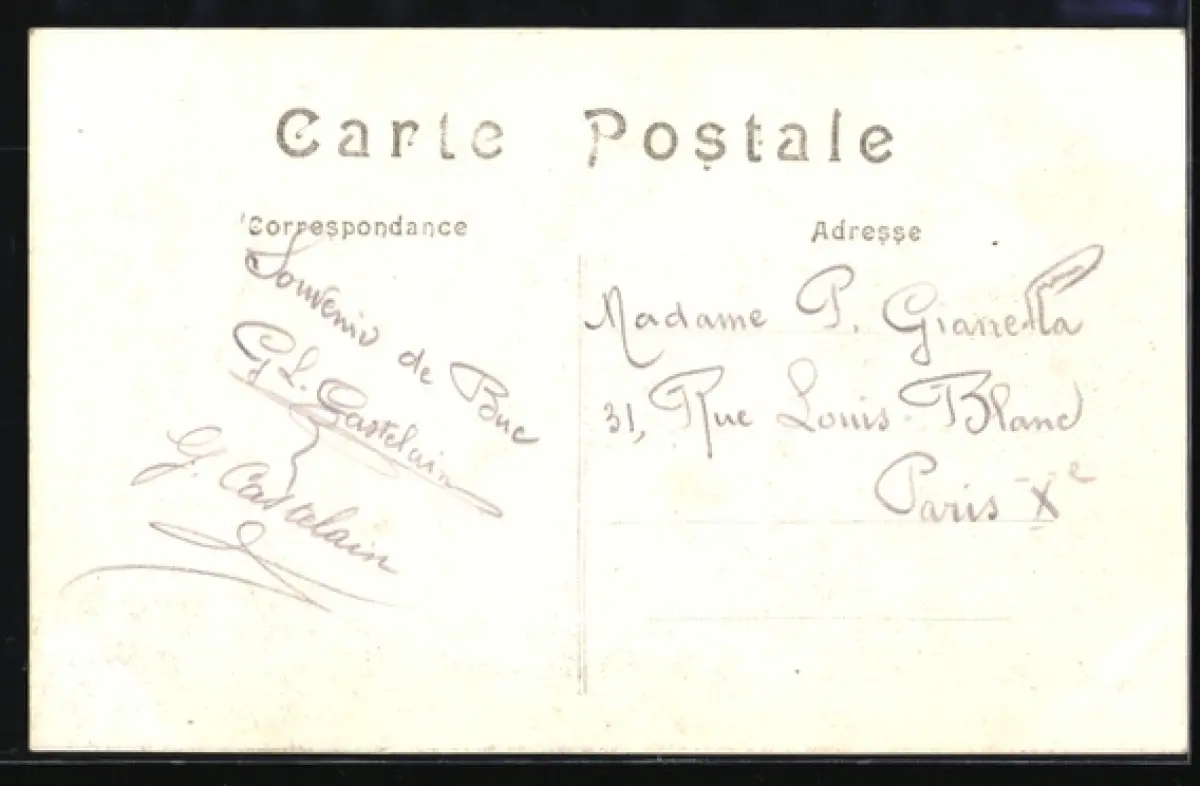 Carte Postale
Correspondance
Souvenir de Buc
G L. Castelain
G. Castelain
Adresse
Madame P.
31, Rue Louis-Blanc
Paris Xe